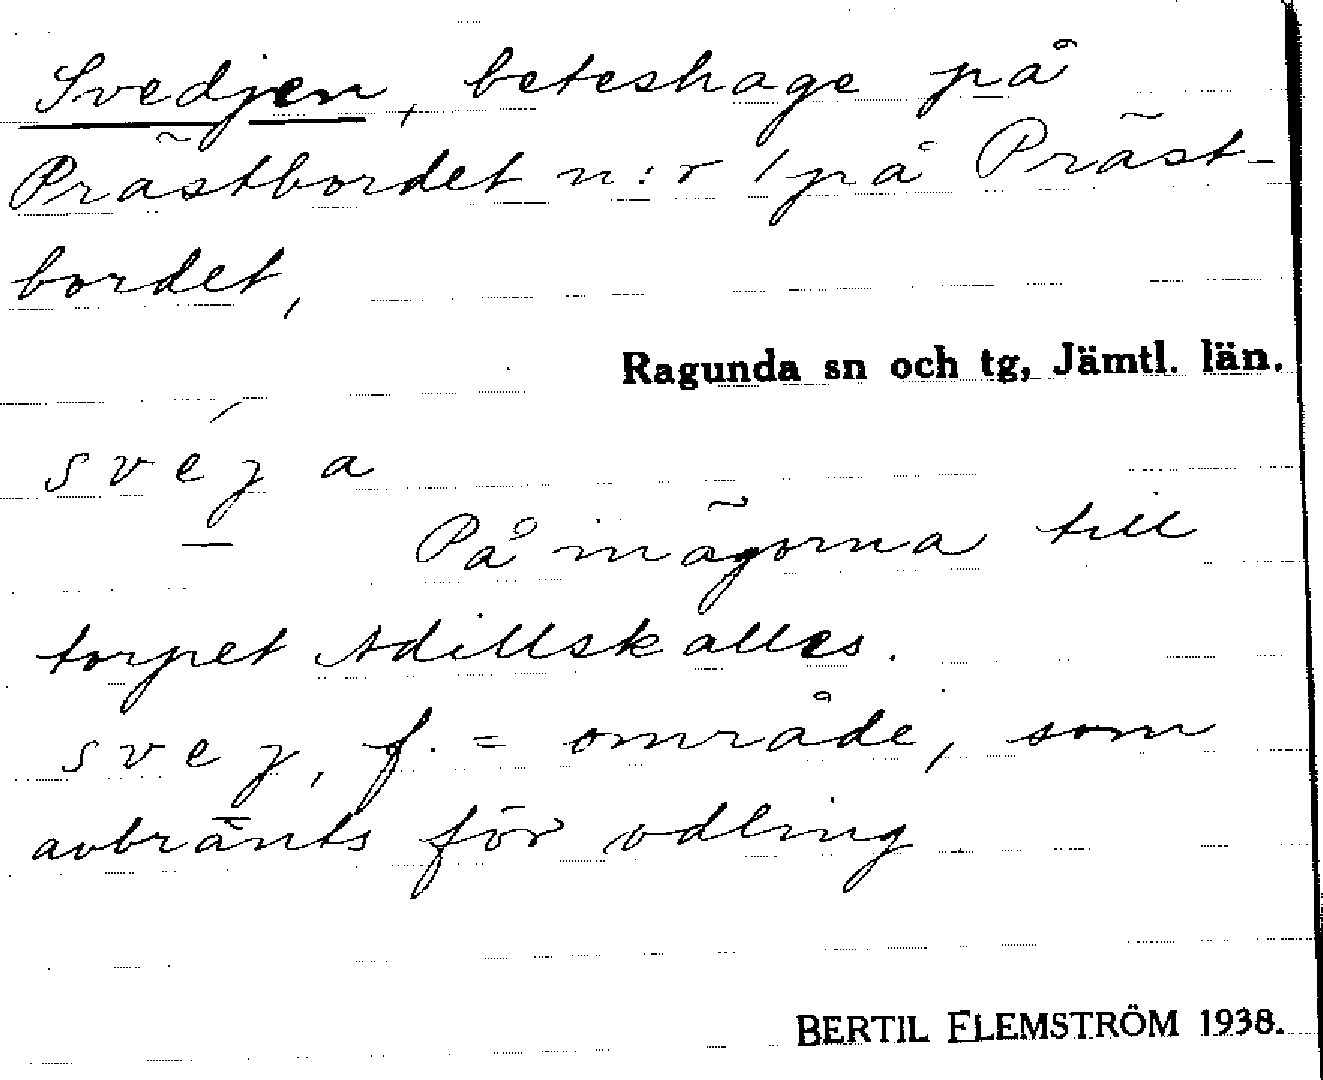 Svedjen, beteshage på
Prästbordet n:r 1 på Präst-
bordet,
Ragunda sn och tg, Jämtl. län.
svéj a
På inägorna till
torpet Adillskalles.
svej, f. = område, som
avbränts för odling
BERTIL FLEMSTRÖM 1938.